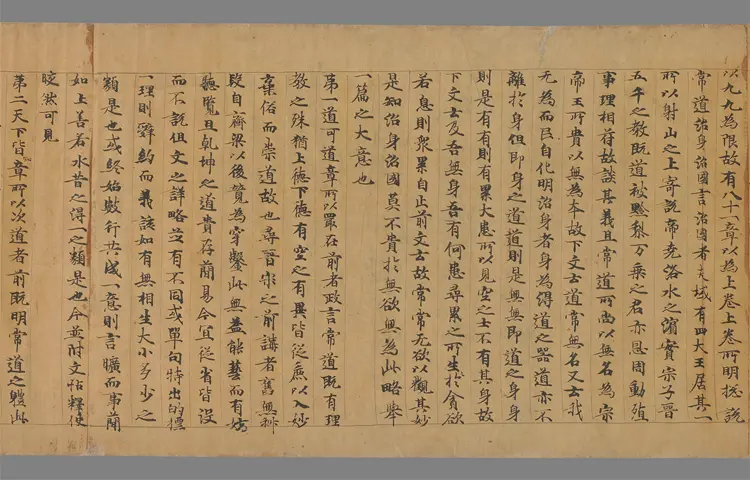 以九九為限故有八十一章以為上卷上卷所明惣說
常道治身治國言治國者夫域有四大王居其一
所以射山之上寄說帝堯洛水之濱實宗子晉
五千之教既道被黔黎万乗之君亦恩周動殖
事理相符故談其義且常道所尚以無名為宗
帝王所貴以無為本故下文云道常無名又云我
无為而民自化明治身者身為得道之器道亦不
離於身但即身之道道則是無無即道之身身
則是有有則有累大患所以見空之士不有其身故
下文云及吾無身吾有何患尋累之所生於貪欲
若息則衆累自止前文云故常常无欲以觀其妙
是知治身治國莫不貴於無欲無為此略舉
一篇之大意也
第一道可道章所以最在前者政言常道既有理
教之殊猶上德下德有空之有異皆從麁以入妙
棄俗而崇道故也尋晉宋之前講者舊無科
段自齊梁以後競為穿鑿此無益能藝而有妨
聽覽且乾坤之道貴存蕳易今宜從省皆沒
而不說但文之詳略並有不同或單句特出的標
一理則辝約而義該如有無相生大小多少之
類是也或終始數行共成一意則言曠而事蕳
如上善若水昔之得一之類是也今並附文怗釋使
皎然可見
第二天下皆章所以次道者前既明常道之體此